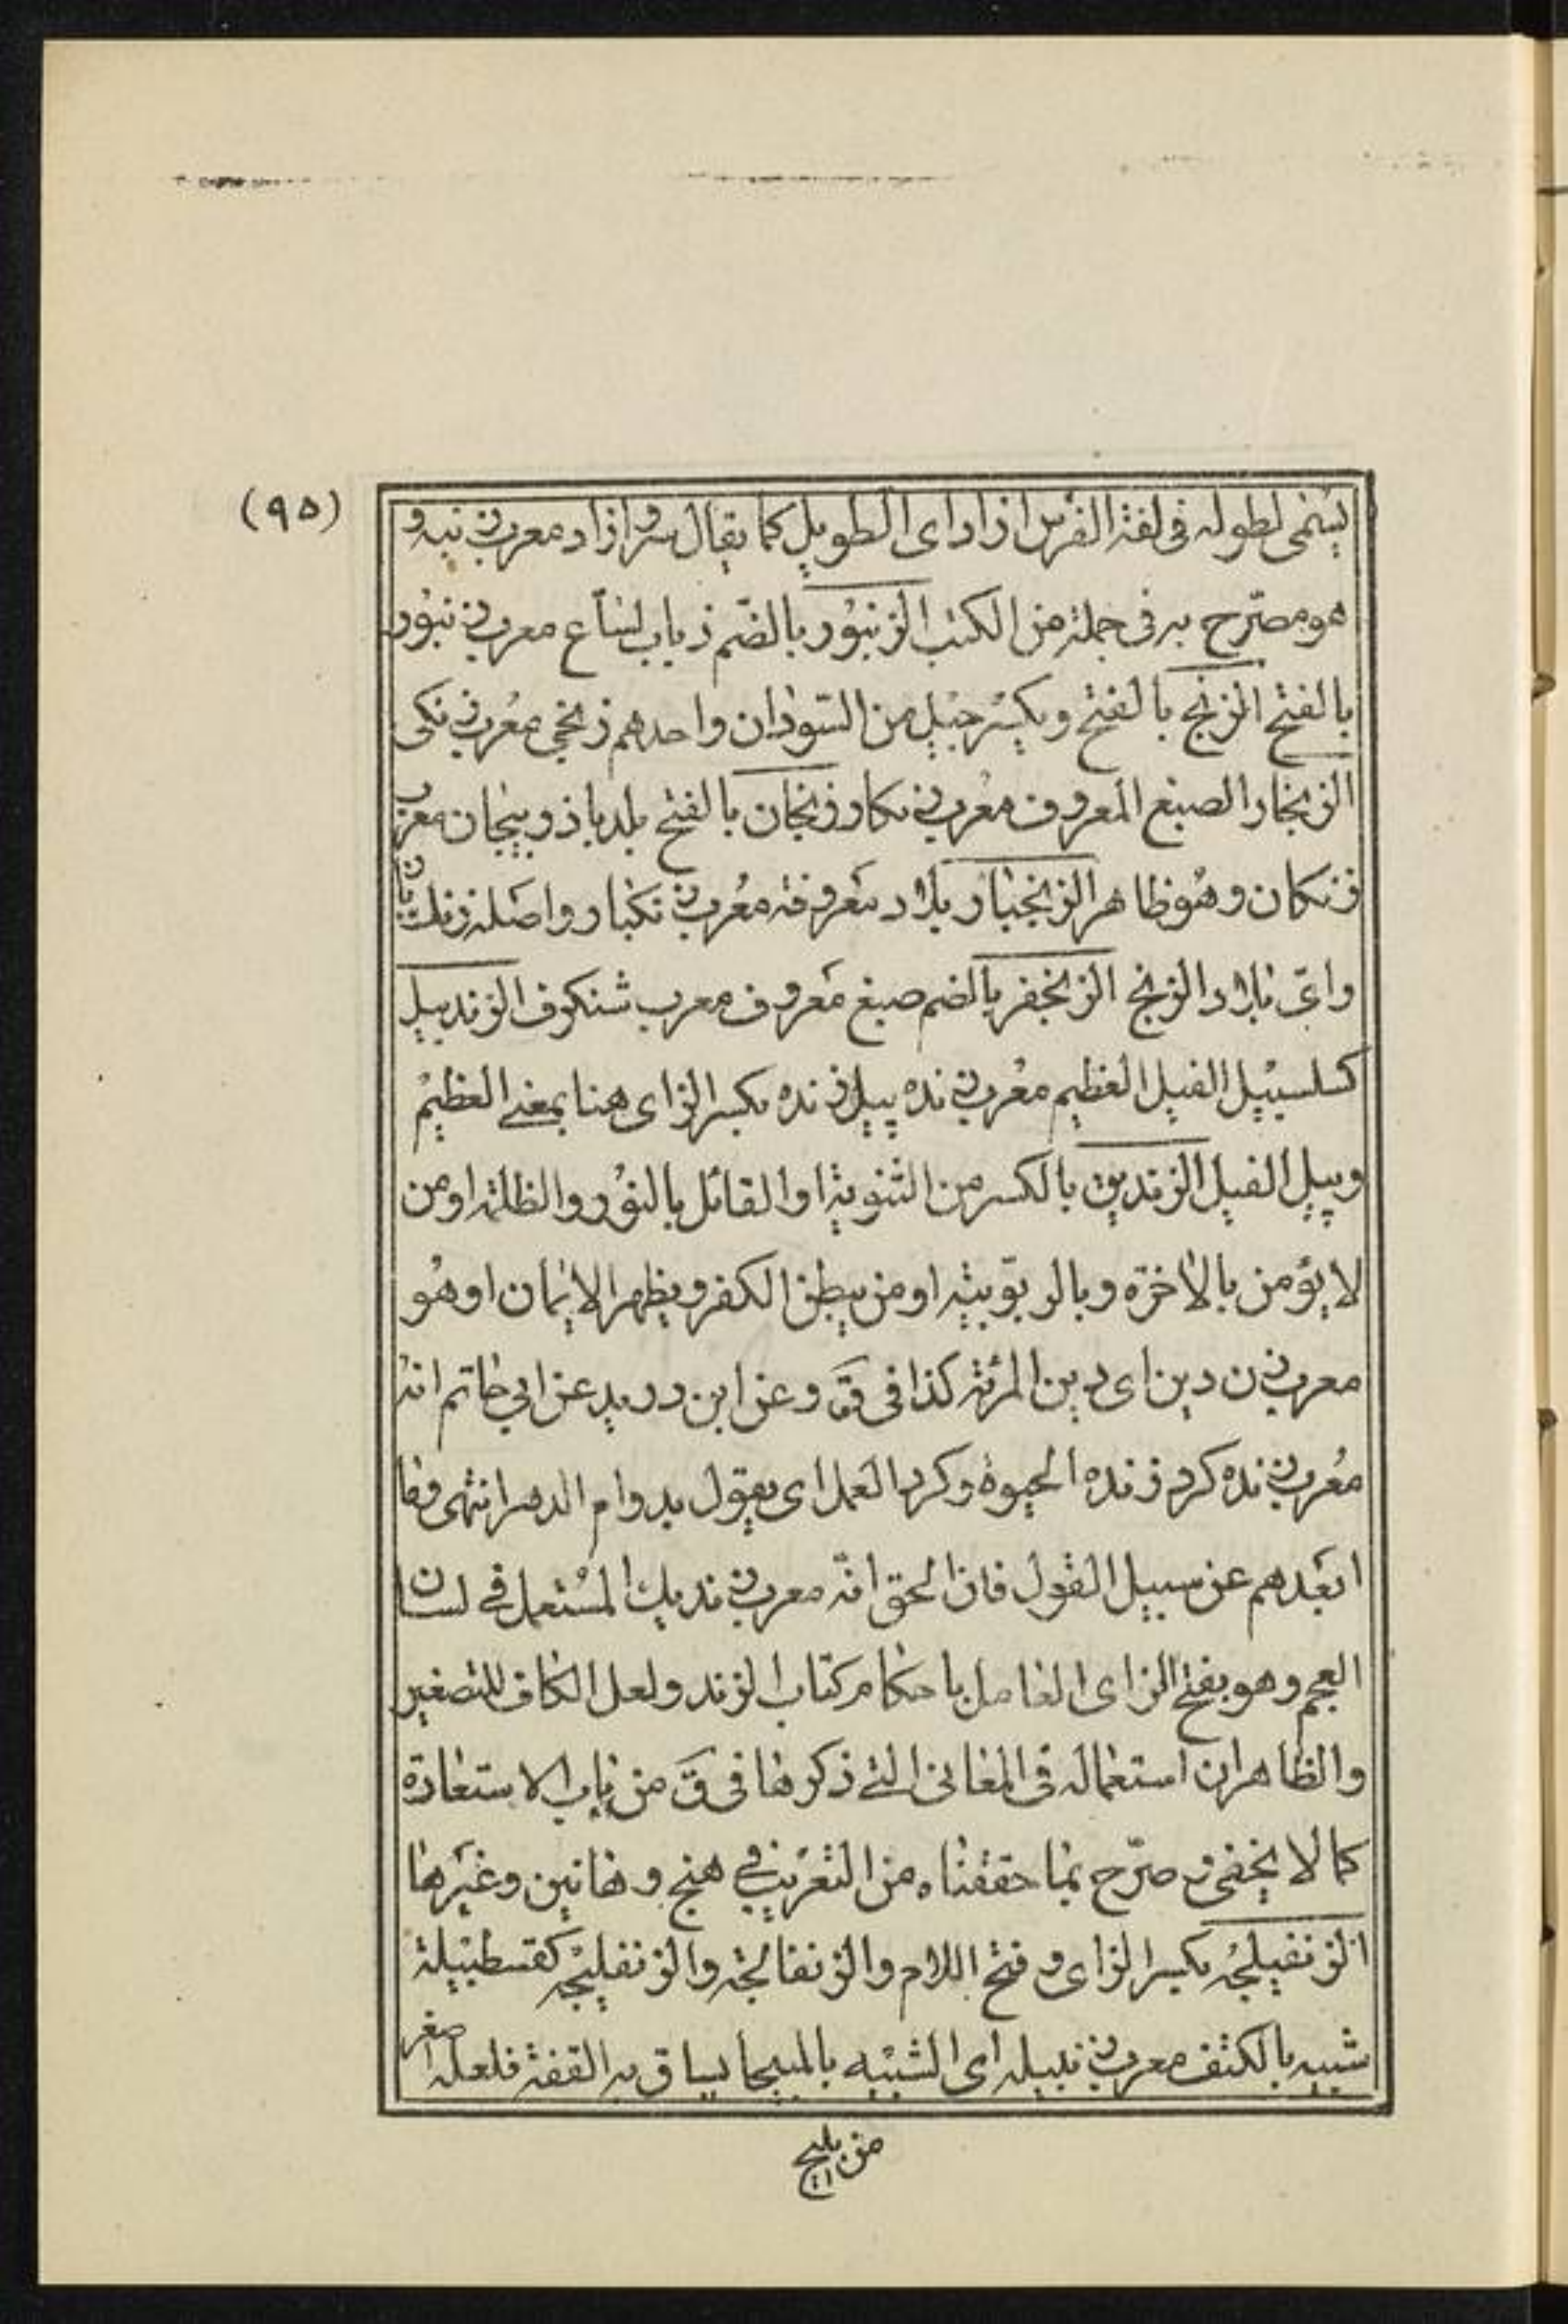 (٩٥)
يسمى لطوله فى لغة الفرس ازاد اى الطويل كما يقال سرو ازاد معرب زنبه و
هو مصرّح به فى جملة من الكتب الزنبور بالضّم ذباب لسّاع معرب زنبور
بالفتح الزنج بالفتح ويكسر جيل من السّودان واحدهم زنجى معرب زنكى
الزنجار الصبغ المعروف معرب زنكار زنجان بالفتح بلد باذربيجان معرب
زنكان وهو ظاهر الزنجبار بلاد معروفة معرب زنكبار واصله زنك بار
واى بلاد الزنج الزنجفر بالضم صبغ معروف معرب شنكرف الزندبيل
كسلسبيل الفيل العظيم معرب زنده پيل زنده بكسر الزاى هنا بمعنى العظيم
وپيل الفيل الزنديق بالكسر من الثنوية او القائل بالنور والظلمة او من
لا يؤمن بالاخرة وبالربوبية او من يبطن الكفر ويظهر الايمان او هو
معرب زن دين اى دين المرئة كذا فى ق وعن ابن دريد عن ابي حاتم انه
معرب زنده كرد زنده الحيوة وكرد العمل اى يقول بدوام الدهر انتهى وما
ابعدهم عن سبيل القول فان الحق انّه معرب زنديك المستعمل في لسان
العجم وهو بفتح الزاى العامل باحكام كتاب الزند ولعل الكاف للتصغير
والظاهر ان استعماله فى المعانى التى ذكرها فى ق من باب الاستعارة
كما لا يخفى و صرّح بما حققناه من التعريب في هنج و هانين وغيرها
الزنفيلجه بكسر الزاى و فتح اللام والزنفالجة والزنفليجه كقسطبيلة
شبيه بالكنف معرب زنبيله اى الشبيه بالمبيجا يساق به القفة فلعله اصغر
من بليج